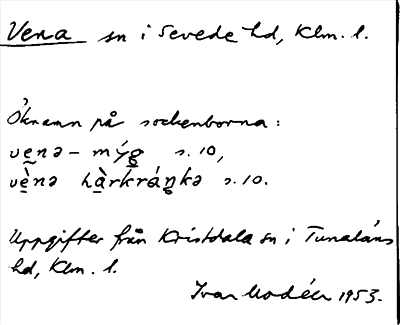 Vena sn i Sevede hd, Klm. l.
Öknamn på sockenborna:
ve̲nə - mýg̲ s. 10,
vè̲nə hà̲rkráŋkə s. 10.
Uppgifter från Kristdala sn i Tunaläns
hd, Klm. l.
Ivar Modéer 1953.